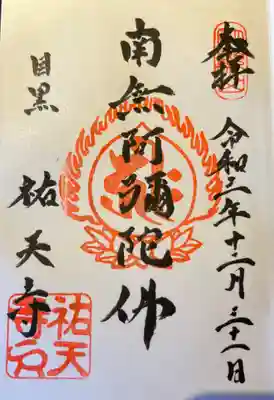 奉拝
令和三年十二月三十一日
南無阿彌陀佛
目黒 祐天寺
祐天
寺印